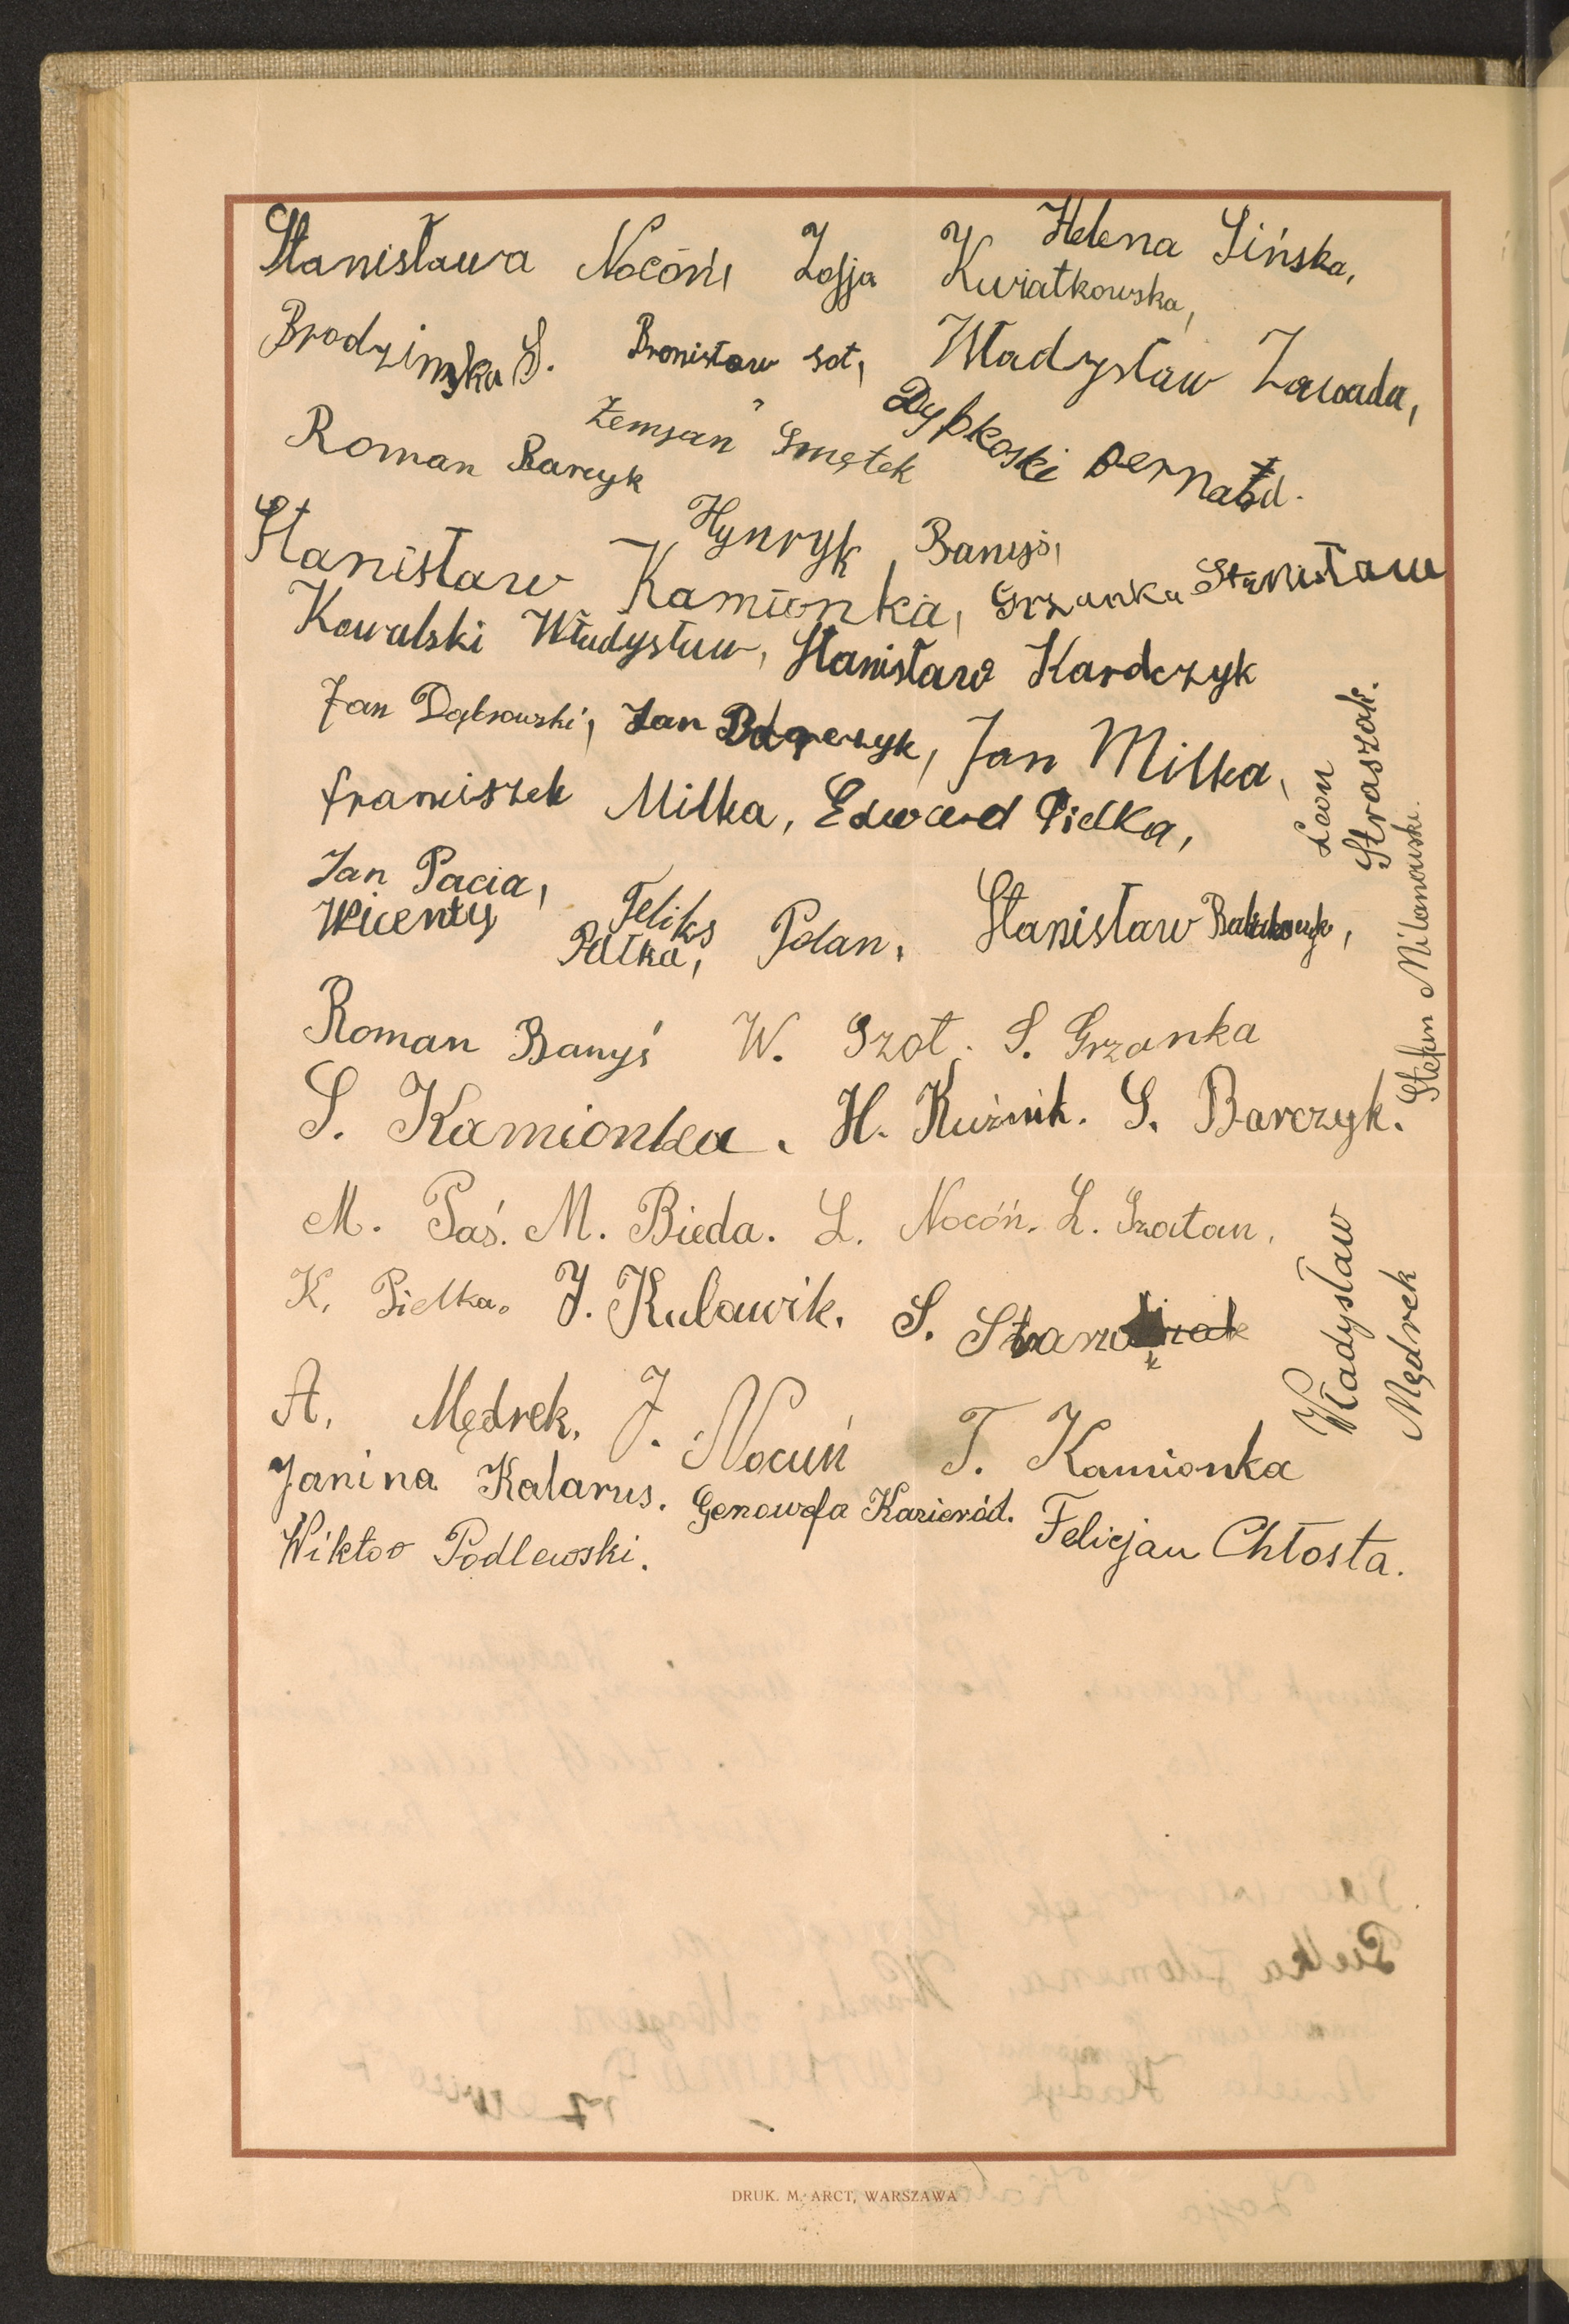 Stanisława Nocóń, Zofja Kwiatkowska, Helena Lińska,
Brodzinska S. Bronisław Sot, Władzysław Zawada,
Roman Barcyk Smętek Dypkoski Bernatd.
Hynryk Banyś,
Stanisław Kamionka, Grzanka Stanisław
Kowalski Władysław, Stanisław Kardczyk
Jan Dąbrowski, Jan Jan Milka,
franiszek Milka, Edward Pielka,
Jan Pacia,
Wicenty Pałka, Feliks Polan, Stanisław
Roman Banyś W. Szot. S. Grzanka
S. Kamionka. H. Kuźnik. S. Barczyk.
M. Paś. M. Bieda. L. Nocóń. L. Szatan.
K. Pielka. J. Kulawik. S.
A. Mędrek. J. Nocuń T. Kamionka
Janina Kalarus. Genowefa Kazieród. Felicjan Chłosta.
Wiktor Podlewski.
Leon Straszak.
Stefan Milanowski.
Władysław Mędrek
DRUK. M. ARCT, WARSZAWA